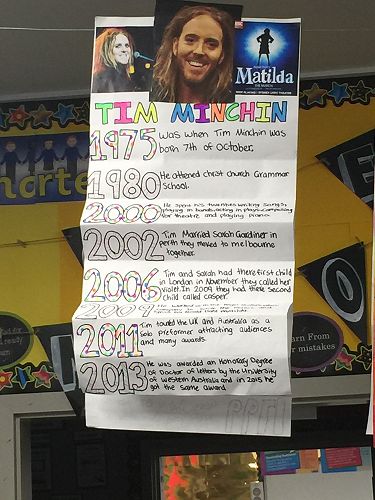 Matilda
THE MUSICAL
TIM MINCHIN
1975 Was when Tim Minchin was
born 7th of October.
1980 He attened christ church Grammar
School.
2000 He spent his twenties writing songs,
playing in bands, acting in plays, composing
for theatre and playing piano.
2002 Tim Married Sarah Gardiner in
perth they moved to melbourne
together.
2006 Tim and Sarah had there first child
in London in November they called her
violet. In 2009 they had there second
child called casper.
2009
2011 Tim toured the UK and Australia as a
Solo preformer attracting audiences
and many awards.
2013 He was awarded an Honorary Degree
of Doctor of letters by the University
of western Australia and in 2015 he
got the same award.
earn From
r mistakes